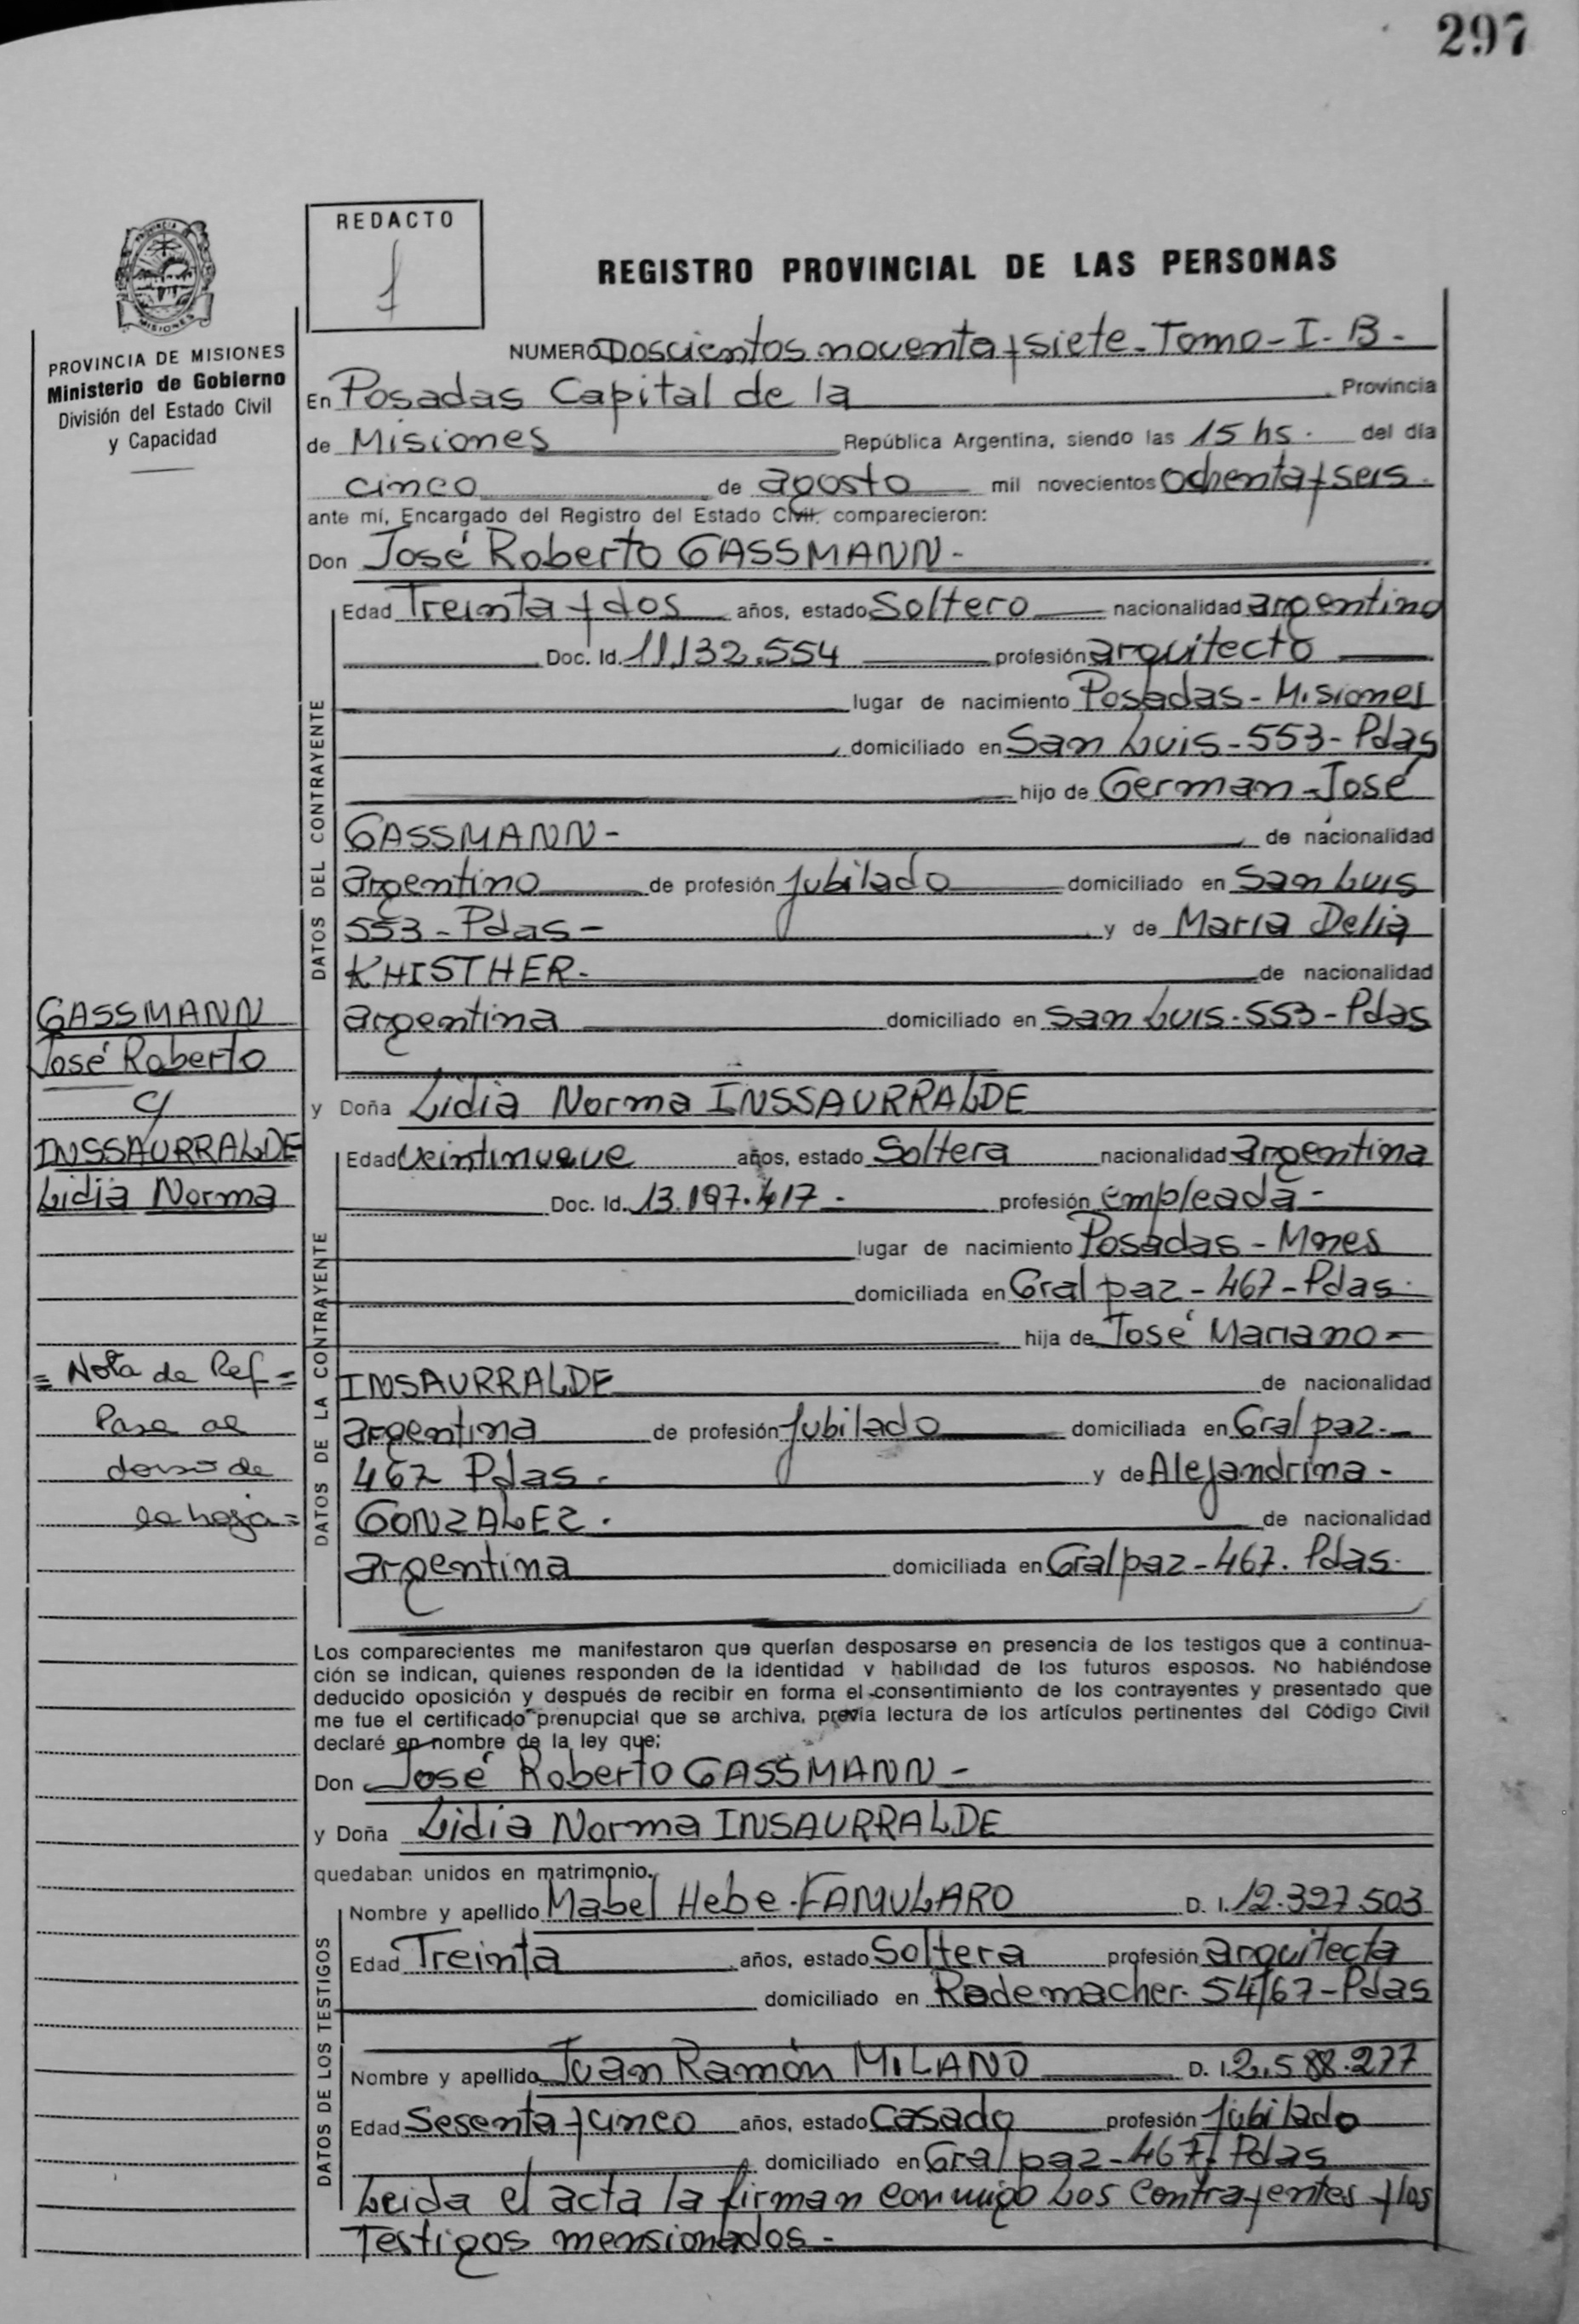 297
REDACTO
REGISTRO PROVINCIAL DE LAS PERSONAS
PROVINCIA DE MISIONES
Ministerio de Gobierno
División del Estado Civil
y Capacidad
NUMERO Doscientos noventa y siete - Tomo - I - B -
En Posadas Capital de la Provincia
de Misiones República Argentina, siendo las 15 hs. del día
cinco de agosto mil novecientos ochenta y seis.
ante mí, Encargado del Registro del Estado Civil, comparecieron:
Don José Roberto GASSMANN -
DATOS DEL CONTRAYENTE
Edad Treinta y dos años, estado Soltero nacionalidad argentino
Doc. Id. 11.132.554 profesión arquitecto
lugar de nacimiento Posadas - Misiones
domiciliado en San Luis - 553 - Pdas
hijo de German José
GASSMANN - de nacionalidad
argentino de profesión Jubilado domiciliado en San Luis
553 - Pdas - y de Maria Delia
KHISTHER - de nacionalidad
argentina domiciliado en San Luis - 553 - Pdas
GASSMANN
José Roberto
c/
INSSAURRALDE
Lidia Norma
y Doña Lidia Norma INSSAURRALDE
DATOS DE LA CONTRAYENTE
Edad veintinueve años, estado Soltera nacionalidad argentina
Doc. Id. 13.197.417 - profesión empleada -
lugar de nacimiento Posadas - Mnes
domiciliada en Gral paz - 467 - Pdas.
hija de José Mariano =
INSAURRALDE de nacionalidad
argentina de profesión Jubilado domiciliada en Gral paz -
467 Pdas. y de Alejandrina -
GONZALEZ. de nacionalidad
argentina domiciliada en Gral paz - 467. Pdas.
= Nota de Ref =
Pasa al
dorso de
la hoja =
Los comparecientes me manifestaron que querían desposarse en presencia de los testigos que a continua-
ción se indican, quienes responden de la identidad y habilidad de los futuros esposos. No habiéndose
deducido oposición y después de recibir en forma el consentimiento de los contrayentes y presentado que
me fue el certificado prenupcial que se archiva, previa lectura de los artículos pertinentes del Código Civil
declaré en nombre de la ley que;
Don José Roberto GASSMANN -
y Doña Lidia Norma INSAURRALDE
quedaban unidos en matrimonio.
DATOS DE LOS TESTIGOS
Nombre y apellido Mabel Hebe FAMULARO D. I. 12.327.503
Edad Treinta años, estado Soltera profesión arquitecta
domiciliado en Rademacher - 54/67 - Pdas
Nombre y apellido Juan Ramón MILANO D. I. 2.588.277
Edad Sesenta y cinco años, estado Casado profesión Jubilado
domiciliado en Gral paz - 467. Pdas
Leida el acta la firman conmigo Los Contrayentes y los
Testigos mensionados -